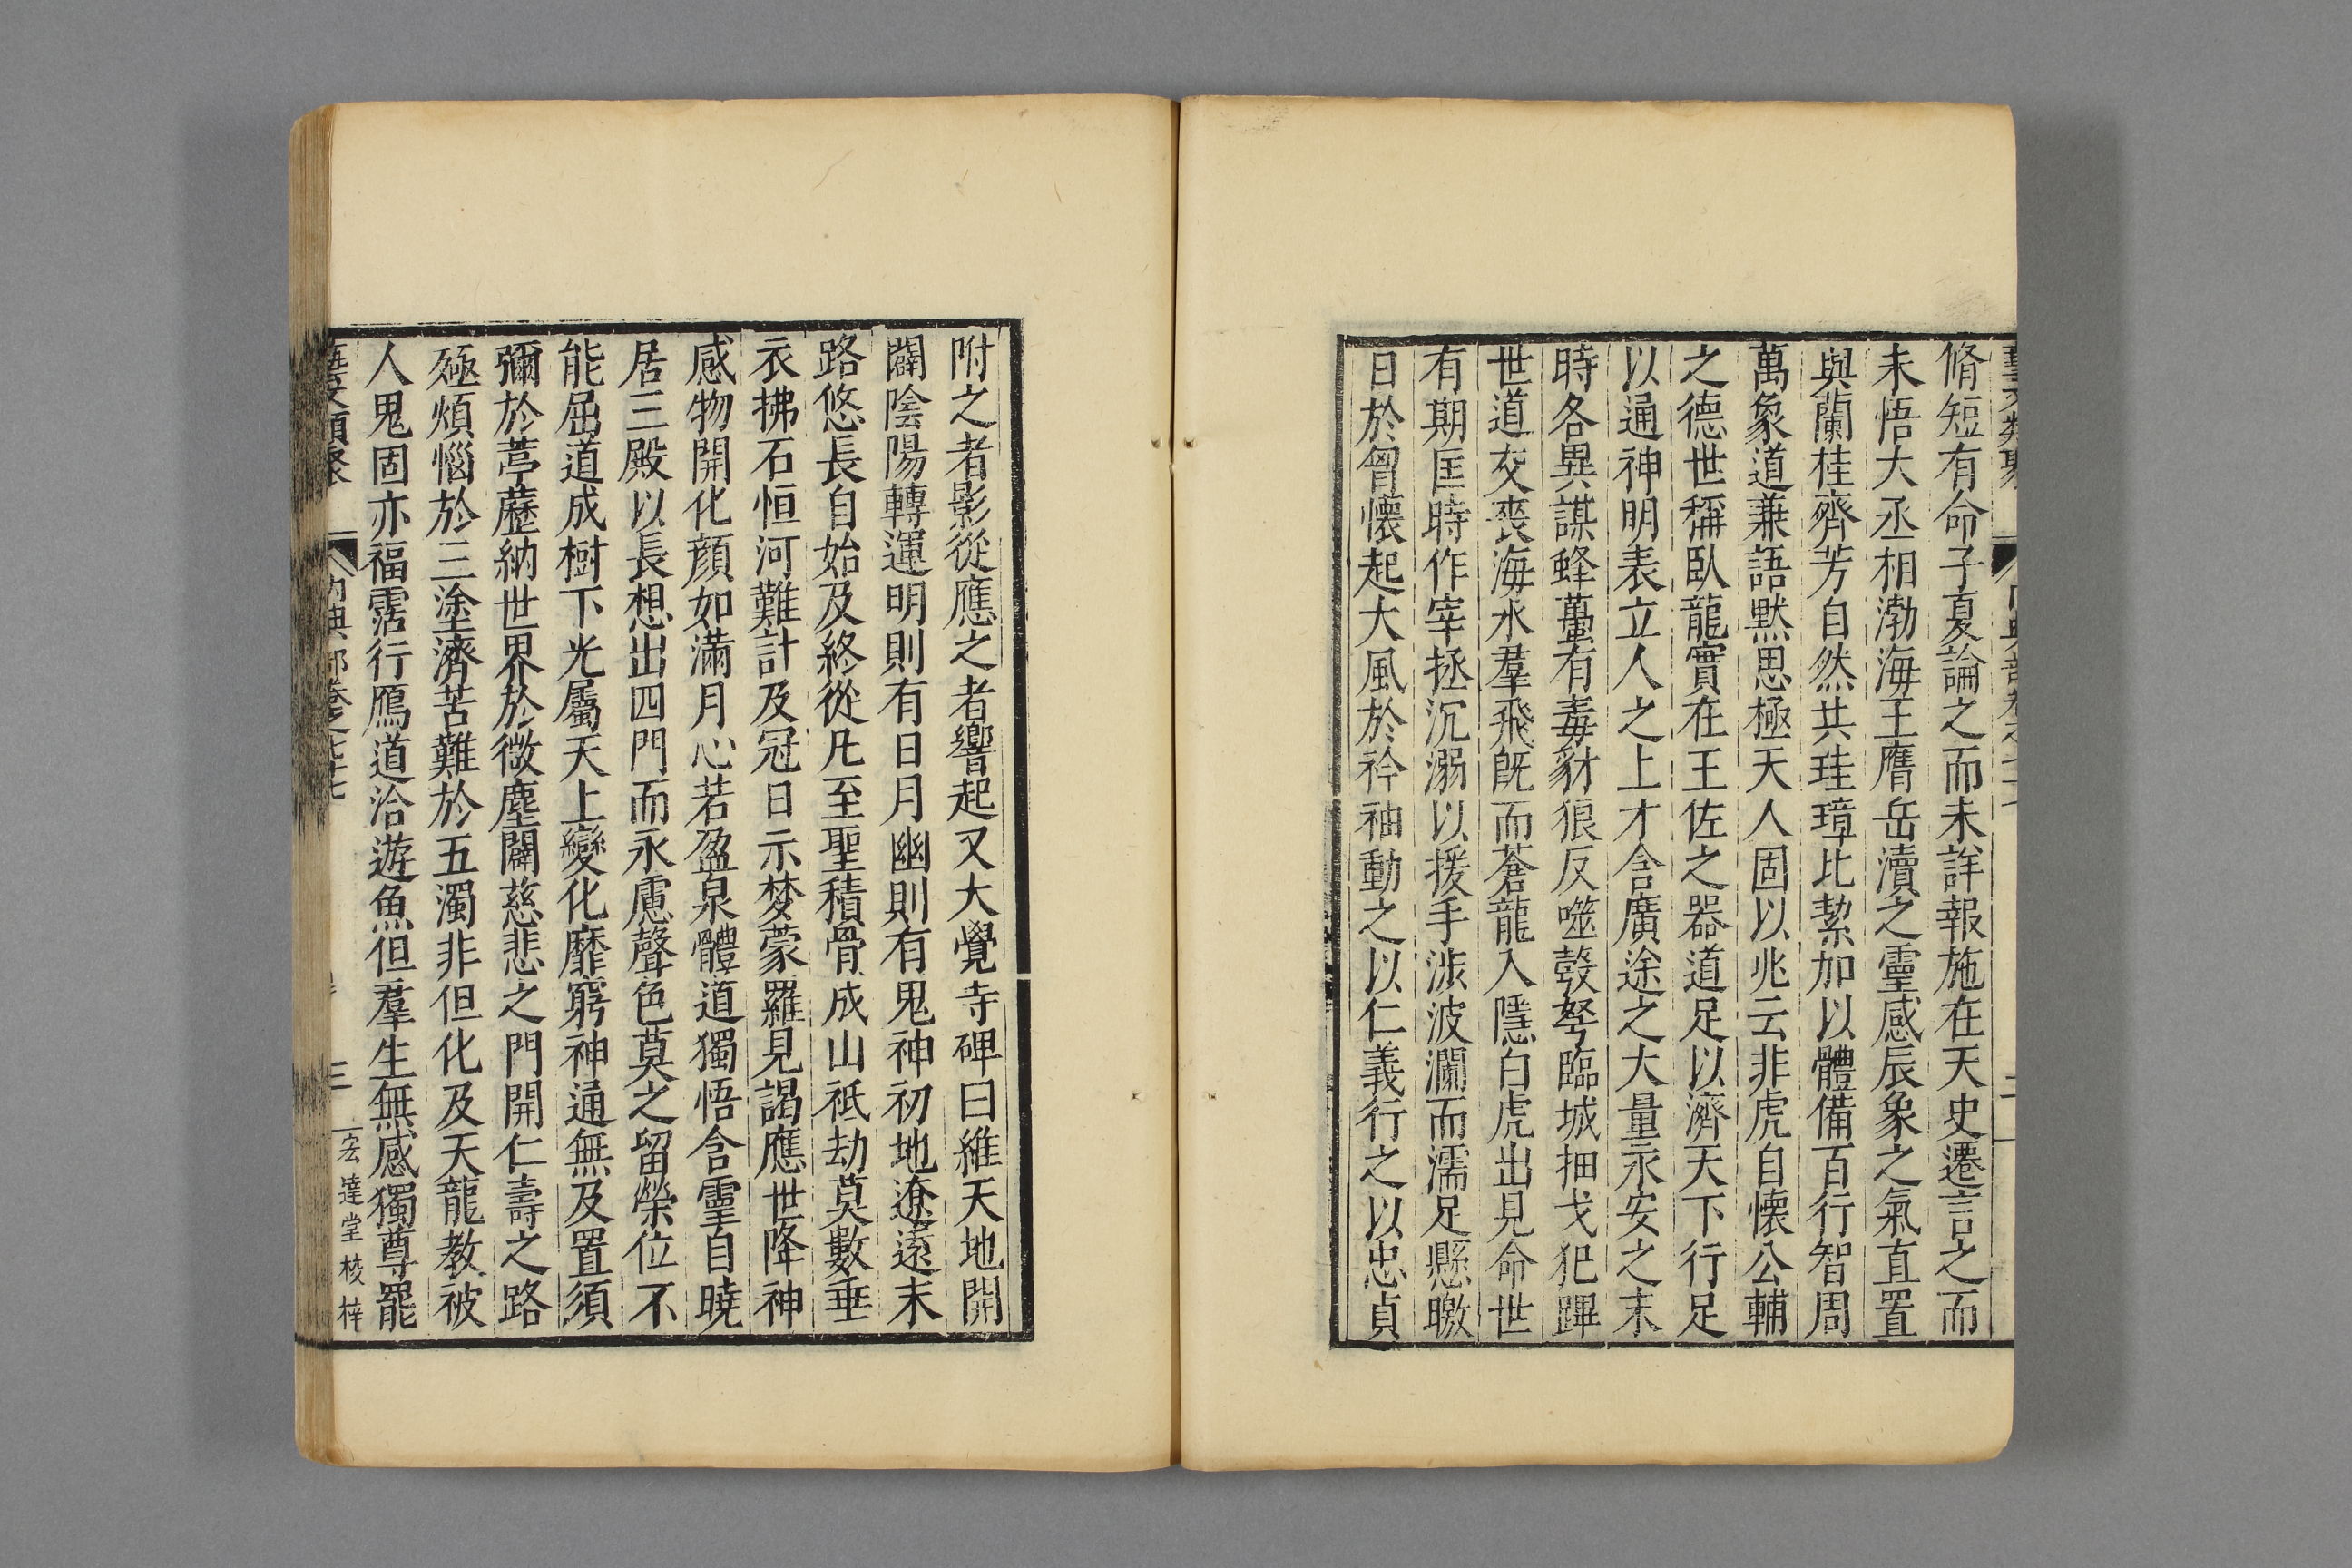 脩短有命子夏論之而未詳報施在天史遷言之而
未悟大丞相渤海王膺岳瀆之靈感辰象之氣直置
與蘭桂齊芳自然共珪璋比㓗加以體備百行智周
萬象道兼語默思極天人固以兆云非虎自懷公輔
之德世稱臥龍實在王佐之器道足以濟天下行足
以通神明表立人之上才含廣途之大量永安之末
時各異謀蜂蠆有毒豺狼反噬彀弩臨城抽戈犯蹕
世道交喪海水羣飛旣而蒼龍入隱白虎出見命世
有期匡時作宰拯沉溺以援手涉波瀾而濡足懸曒
日於曾懷起大風於衿袖動之以仁義行之以忠貞
附之者影從應之者響起又大覺寺碑曰維天地開
闢陰陽轉運明則有日月幽則有鬼神初地遼遠末
路悠長自始及終從凡至聖積骨成山祇劫莫數垂
衣拂石恒河難計及冠日示梦蒙羅見謁應世降神
感物開化顔如滿月心若盈泉體道獨悟含靈自曉
居三殿以長想出四門而永慮聲色莫之留榮位不
能屈道成樹下光屬天上變化靡窮神通無及置須
彌於葶藶納世界於微塵闢慈悲之門開仁壽之路
殛煩惱於三塗濟苦難於五濁非但化及天龍教被
人鬼固亦福霑行鴈道洽遊魚但羣生無感獨尊罷
藝文類聚 內典部卷之七十七 三 宏達堂校梓